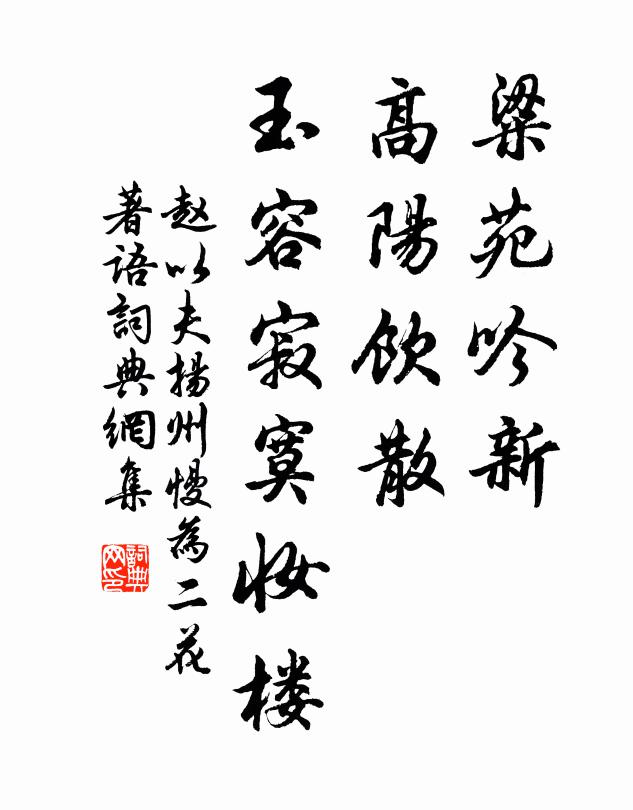 梁苑吟新
高陽飲散
玉容寂寞妝楼
赵以夫揚州慢為二花
著語詞典網集
詞典
网印